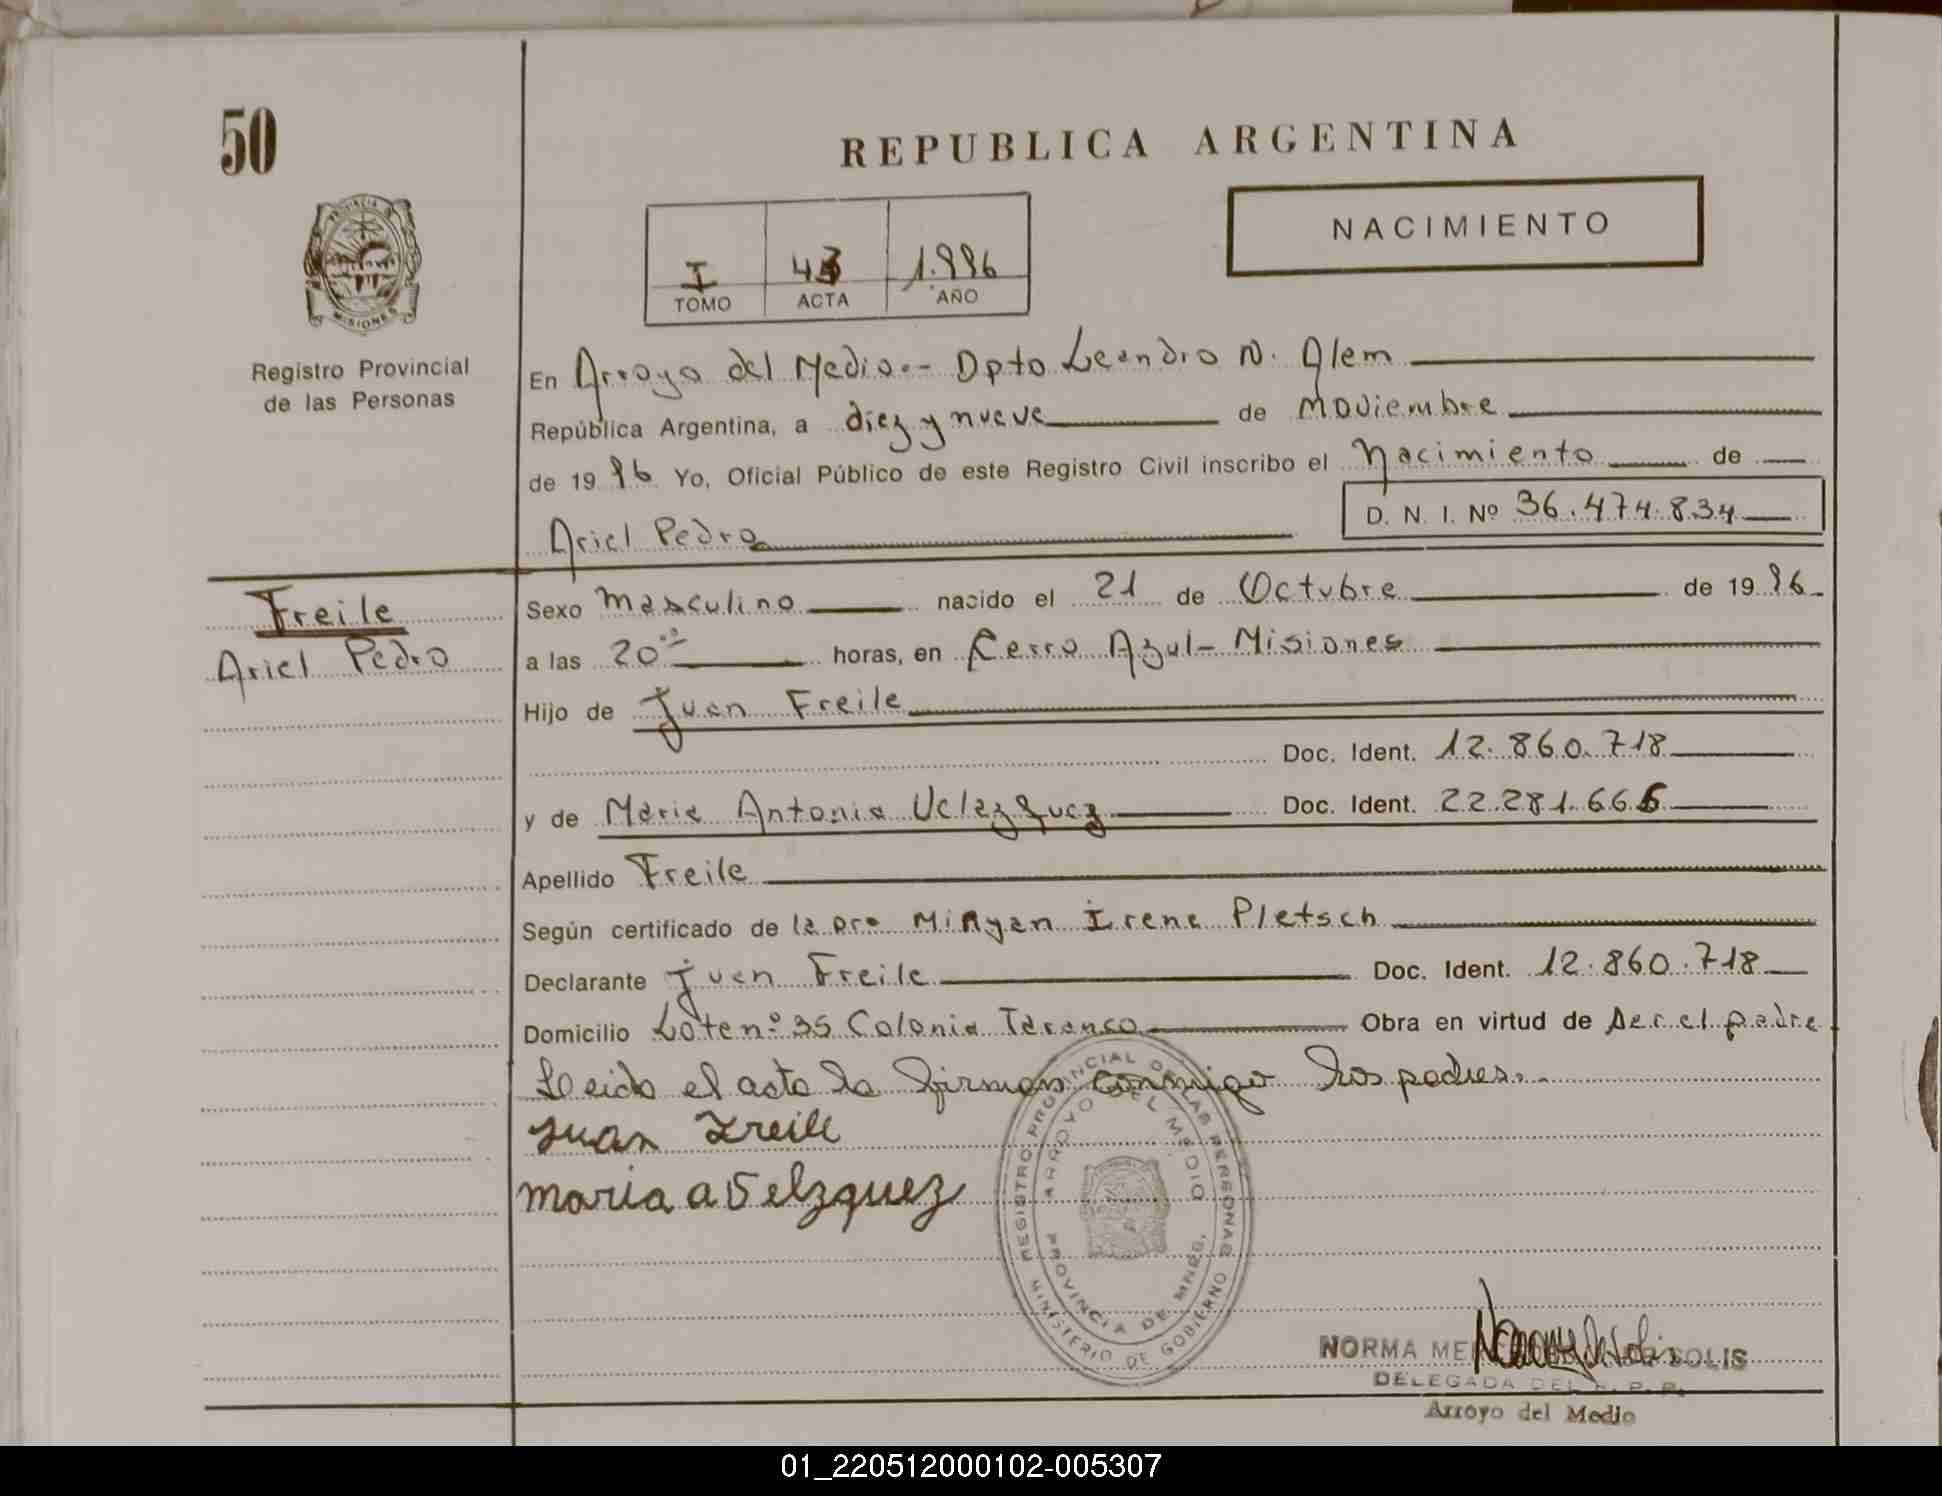 50
REPUBLICA ARGENTINA
NACIMIENTO
I 43 1.986
TOMO ACTA AÑO
PROVINCIA DE
MISIONES
Registro Provincial
de las Personas
En Arroyo del Medio.- Dpto Leandro N. Alem
República Argentina, a diez y nueve de Noviembre
de 1986 Yo, Oficial Público de este Registro Civil inscribo el Nacimiento de
Ariel Pedro D. N. I. Nº 36.474.834
Freile
Ariel Pedro
Sexo Masculino nacido el 21 de Octubre de 1986
a las 20 horas, en Cerro Azul - Misiones
Hijo de Juan Freile
Doc. Ident. 12.860.718
y de Maria Antonia Velazquez Doc. Ident. 22.281.666
Apellido Freile
Según certificado de la Dra Irene Pletsch
Declarante Juan Freile Doc. Ident. 12.860.718
Domicilio Lote nº 35 Colonia Taranco Obra en virtud de ser el padre
Leida el acta la firman conmigo los padres.
Juan Freile
maria a Velzquez
REGISTRO PROVINCIAL DE LAS PERSONAS
ARROYO DEL MEDIO
PROVINCIA DE MNES.
MINISTERIO DE GOBIERNO
NORMA SOLIS
DELEGADA DEL R. P. P.
Arroyo del Medio
01_220512000102-005307